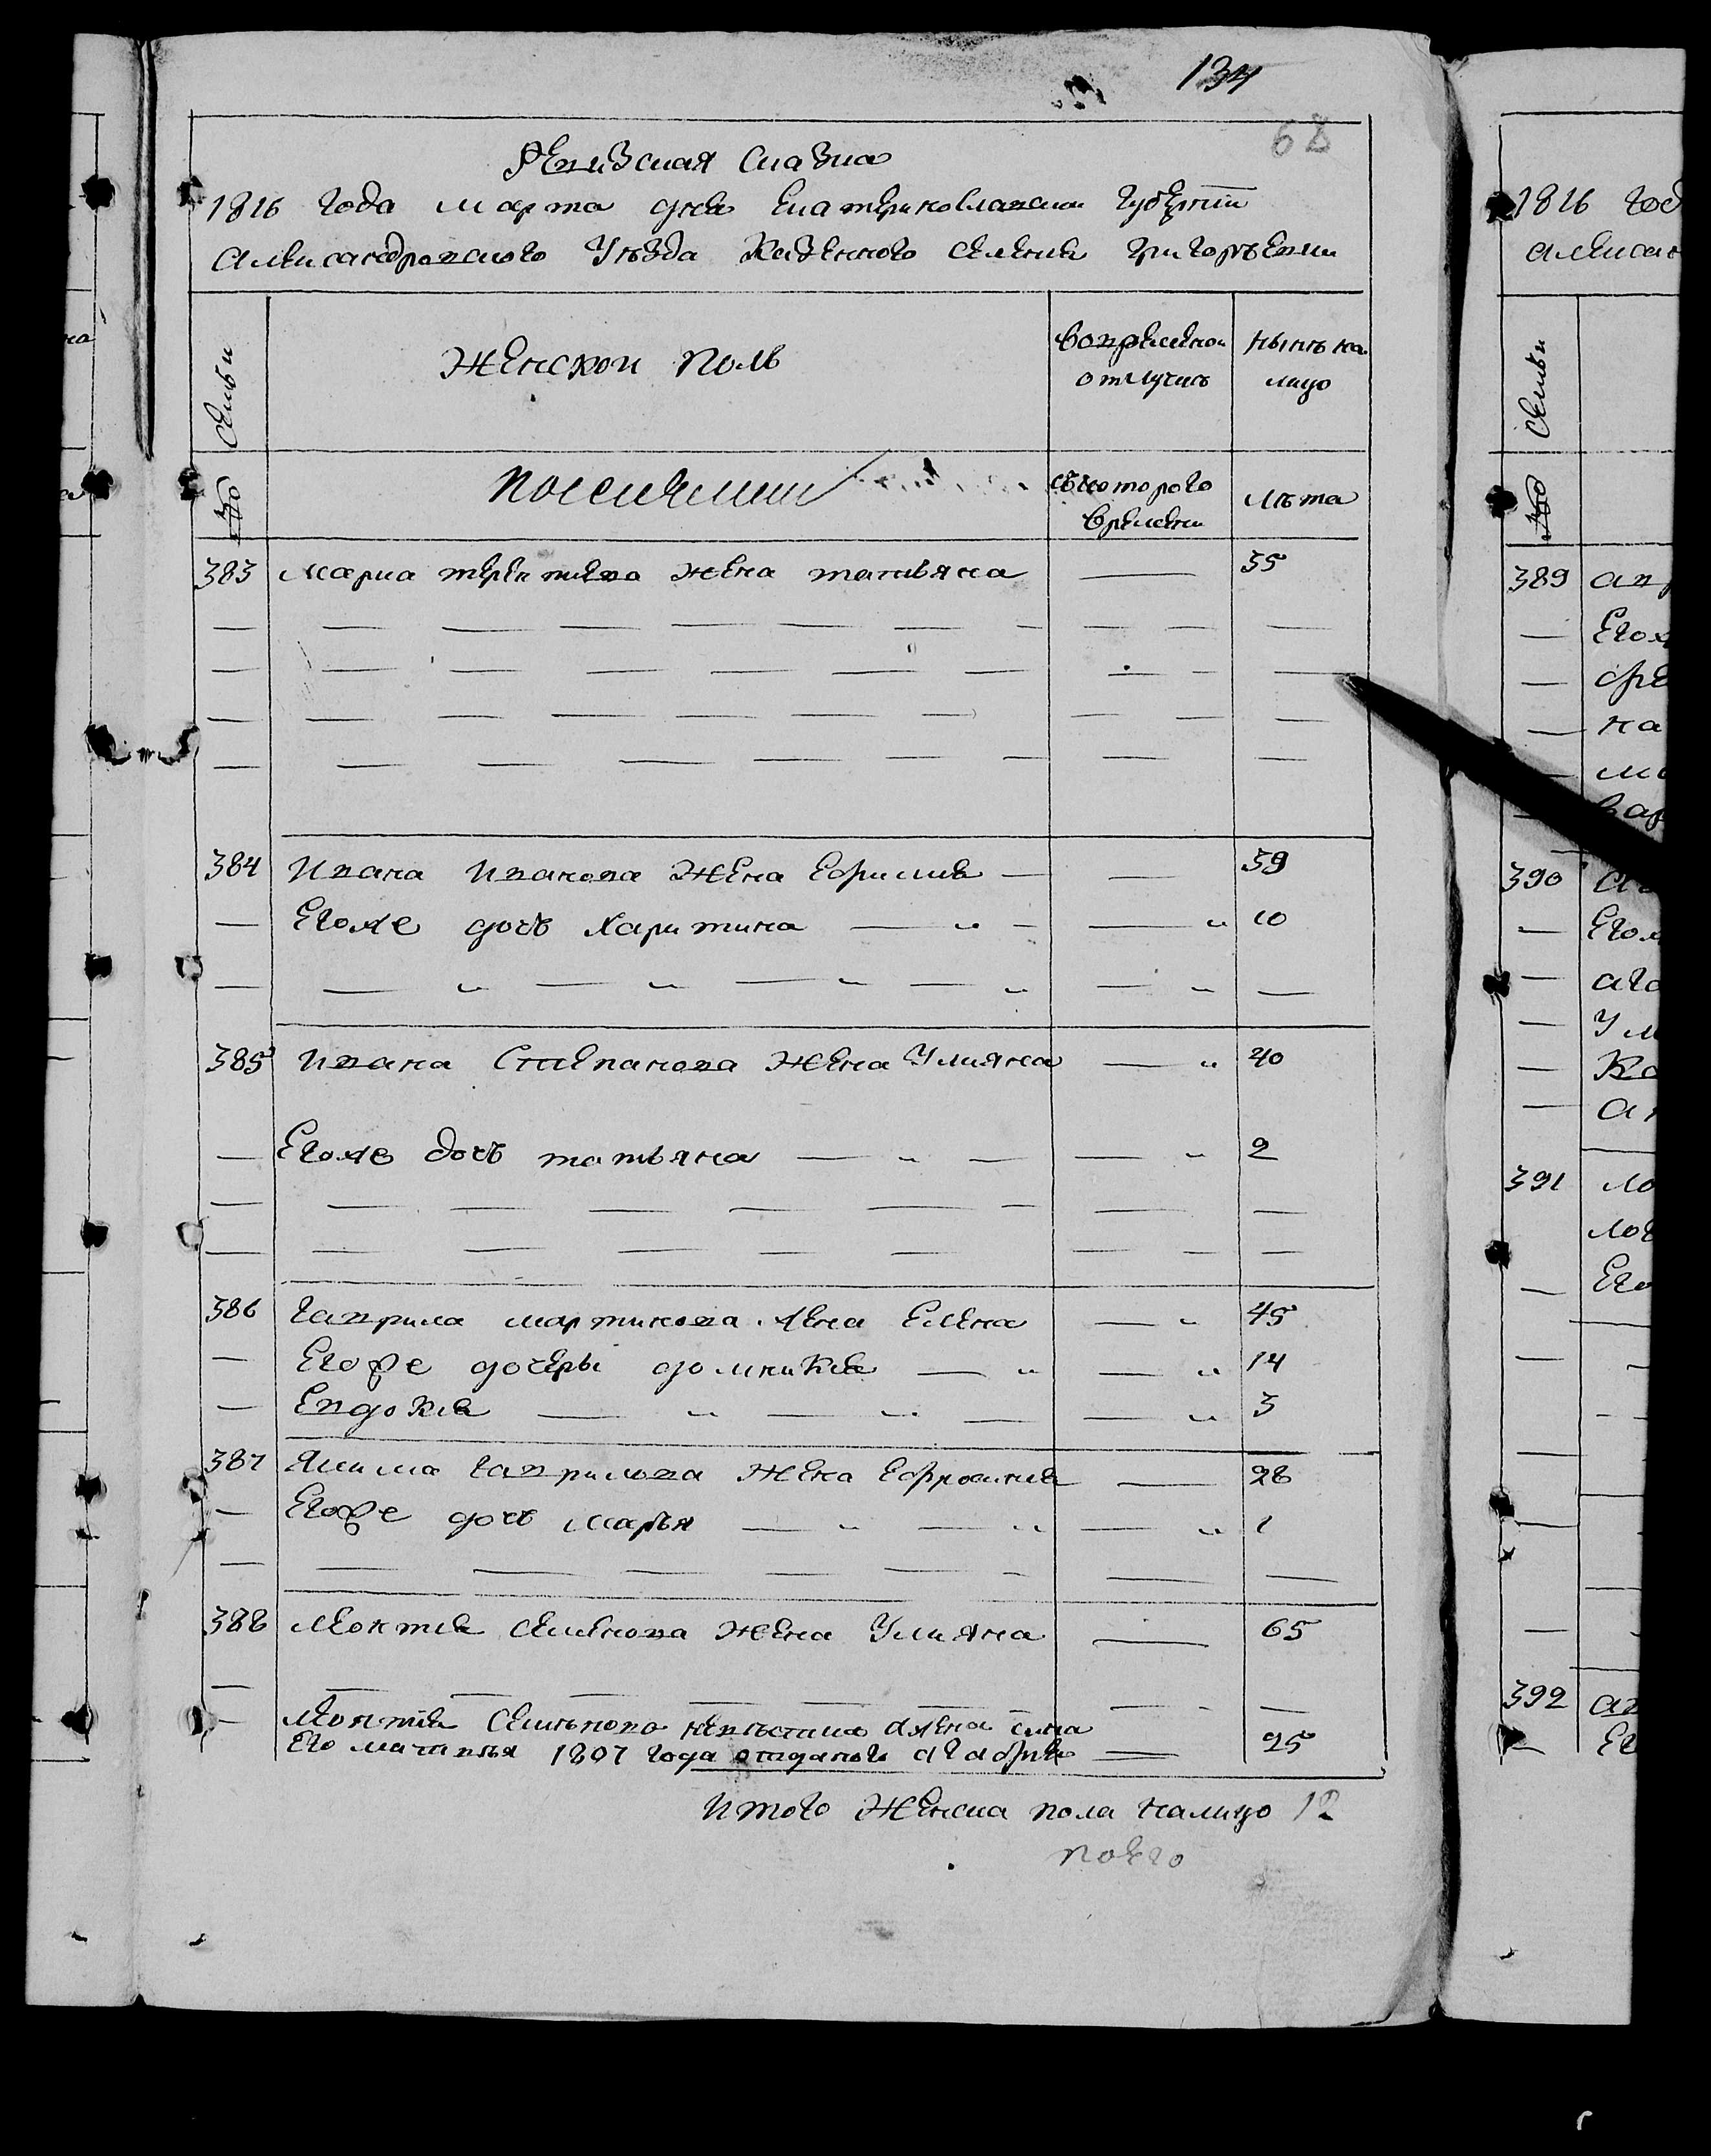 134
68
Ревизская сказка
1816 года марта дня Екатеринославской Губернии
Александровского Уѣзда Казенного селения Григорьевки
Семьи
Женской полъ
Вовременной отлучкѣ
Нынѣ на лицо
№
съ которого времени
Лѣта
383 Марка Терентиева жена татьяна — 35
384 Ивана Иванова Жена Ефимия — 39
— Егоже дочь Харитина — " — — " 10
385 Ивана Степанова Жена Улияна — " 40
— Егоже дочь татьяна — " — — " 2
386 Гаврила мартинова жена Елена — " 45
— Егоже дочери домникия — " — " 14
— Евдокия — " — " — — " 3
387 Якима Гаврилова Жена Ефросиния — 28
— Егоже дочь марья — " — " — " 1
388 Леонтия Семенова жена Улияна — 65
— Леонтия Семенова
Его 1807 года агафия — 25
Итого Женска пола налицо 12
1816 год
Семьи
№
389
390
391
392